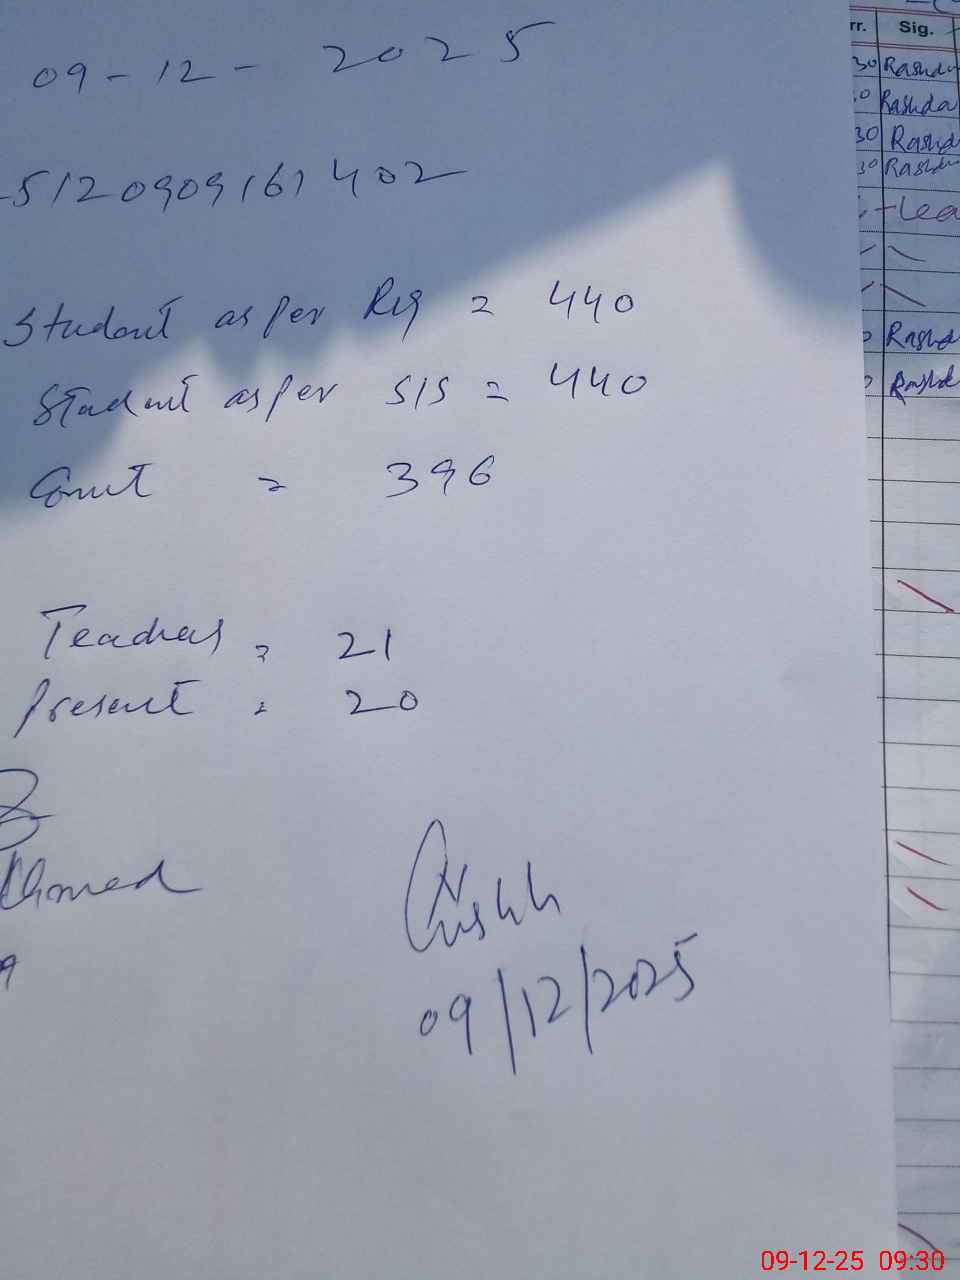 09-12-2025
-5120909161402
Student as per Reg = 440
Student as per SIS = 440
Count = 396
Teachers = 21
Present = 20
Ahmed
09/12/2025
rr. Sig.
30 Rashda
0 Rashda
30 Rashda
30 Rashda
-Lea
Rashda
Rashda
09-12-25 09:30